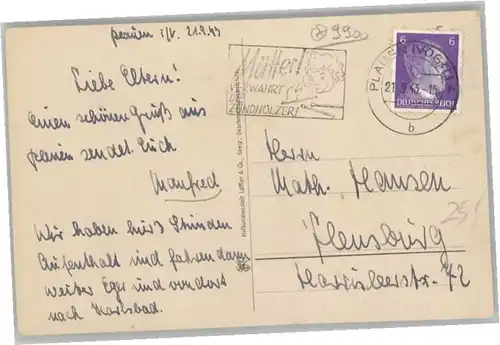 Plauen i/V. 21.9.43
9900
Liebe Eltern!
Einen schönen Gruß aus
Plauen sendet Euch
Manfred
Wir haben hier 3 Stunden
Aufenthalt und fahren dann
weiter Eger und von dort
nach Karlsbad.
Mütter!
VERWAHRT
ZÜNDHÖLZER!
PLAUEN (VOGTL)
21.9.43
b
6 6
DEUTSCHES REICH
Herrn
Math. Hansen
Flensburg
Harrisleerstr. 72
25!